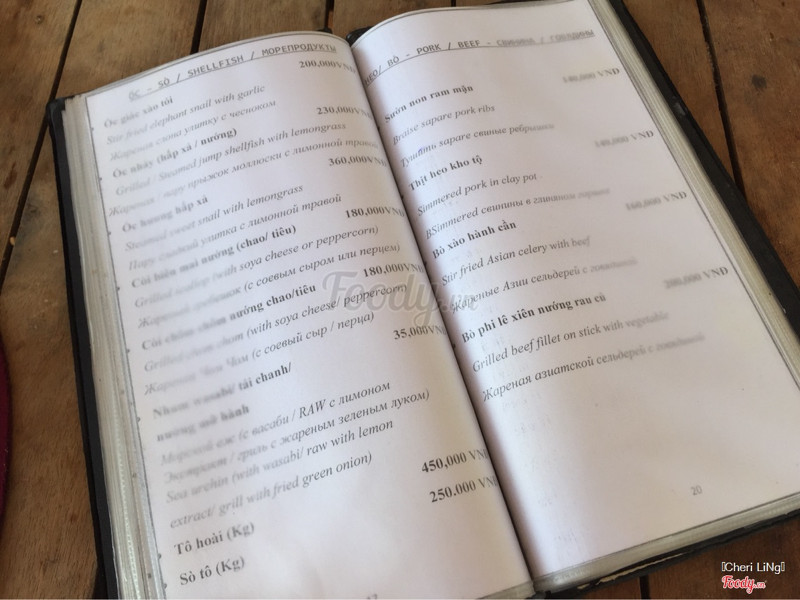 ỐC - SÒ / SHELLFISH / МОРЕПРОДУКТЫ
Ốc giác xào tỏi
200,000VND
Stir fried elephant snail with garlic
Жареная слона улитку с чесноком
Ốc nhảy (hấp xả / nướng)
230,000VND
Grilled / Steamed jump shellfish with lemongrass
Жареная / пару прыжок моллюски с лимонной травой
Ốc hương hấp xả
360,000VND
Steamed sweet snail with lemongrass
Парe сладкий улитка с лимонной травой
Còi biên mai nướng (chao/ tiêu)
180,000VND
Grilled scallop (with soya cheese or peppercorn)
(с соевым сыром или перцем)
Còi chôm chôm nướng chao/tiêu
180,000VND
Grilled chom chom (with soya cheese/ peppercorn)
Жареная Чом Чом (с соевый сыр / перца)
Nhum wasabi/ tái chanh/
35,000VND
nướng mỡ hành
Морской еж (с васаби / RAW с лимоном
Экстракт / гриль с жареным зеленым луком)
Sea urchin (with wasabi/ raw with lemon
extract/ grill with fried green onion)
Tô hoài (Kg)
450,000 VND
Sò tô (Kg)
250.000 VND
HEO/ BÒ - PORK / BEEF - СВИНИНА / ГОВЯДИНЫ
Sườn non ram mặn
140,000 VND
Braise sapare pork ribs
Тушито sapare свиные ребрышки
Thịt heo kho tộ
140,000 VND
Simmered pork in clay pot
BSimmered свинины в глиняном горшке
Bò xào hành cần
160,000 VND
Stir fried Asian celery with beef
Жареные Азии сельдерей с говядиной
Bò phi lê xiên nướng rau củ
200,000 VND
Grilled beef fillet on stick with vegetable
Жареная азиатской сельдерей с говядиной
20
Foody.vn
Cheri LiNg
Foody.vn